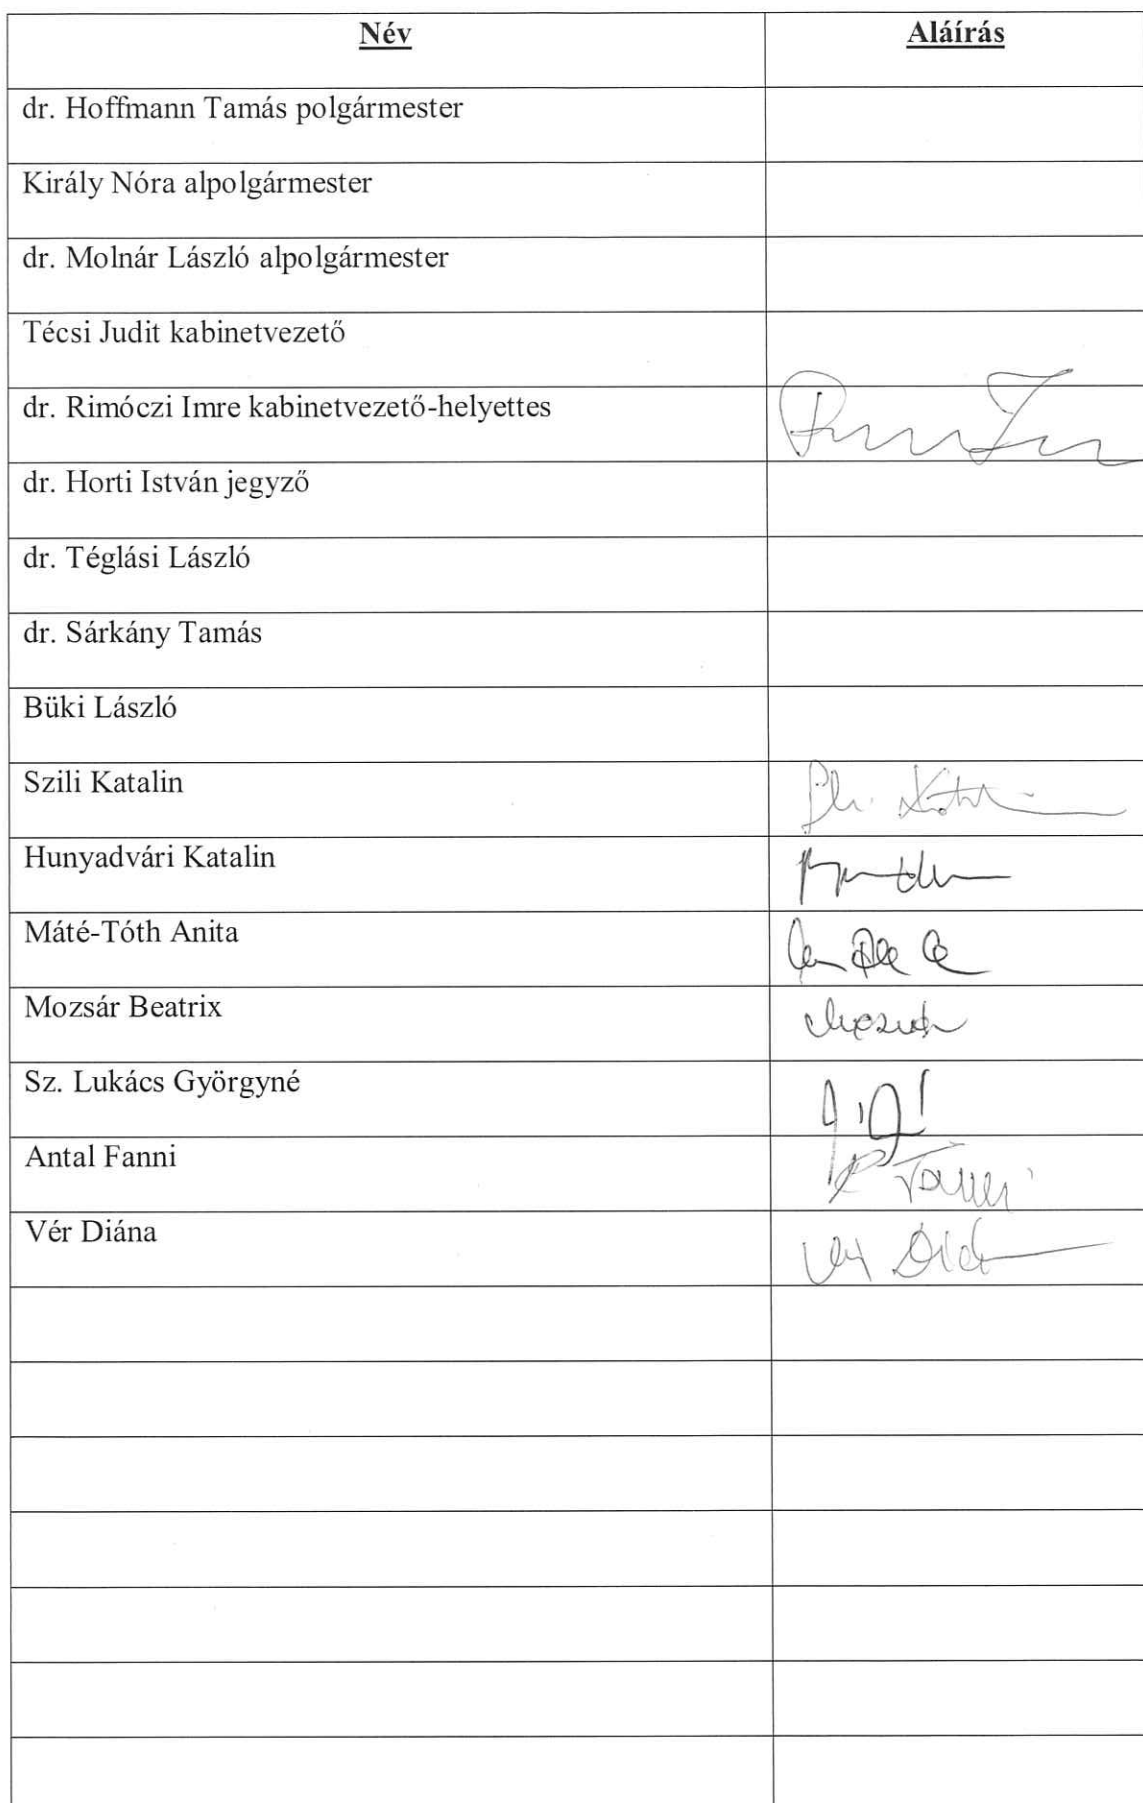 Név Aláírás
dr. Hoffmann Tamás polgármester
Király Nóra alpolgármester
dr. Molnár László alpolgármester
Técsi Judit kabinetvezető
dr. Rimóczi Imre kabinetvezető-helyettes
dr. Horti István jegyző
dr. Téglási László
dr. Sárkány Tamás
Büki László
Szili Katalin
Hunyadvári Katalin
Máté-Tóth Anita
Mozsár Beatrix
Sz. Lukács Györgyné
Antal Fanni
Vér Diána